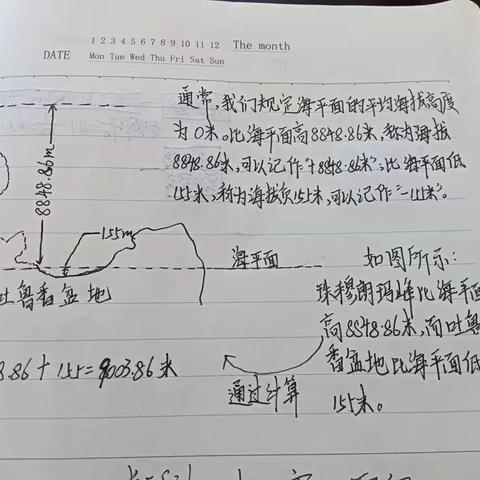 1 2 3 4 5 6 7 8 9 10 11 12 The month
DATE Mon Tue Wed Thu Fri Sat Sun
通常,我们规定海平面的平均海拔高度
为0米。比海平面高8848.86米,称为海拔
8848.86米,可以记作“+8848.86米”;比海平面低
155米,称为海拔负155米,可以记作“-155米”。
8848.86m
155m
海平面
吐鲁番盆地
如图所示:
珠穆朗玛峰比海平面
高8848.86米,而吐鲁
番盆地比海平面低
155米。
8.86+155=9003.86米
通过计算